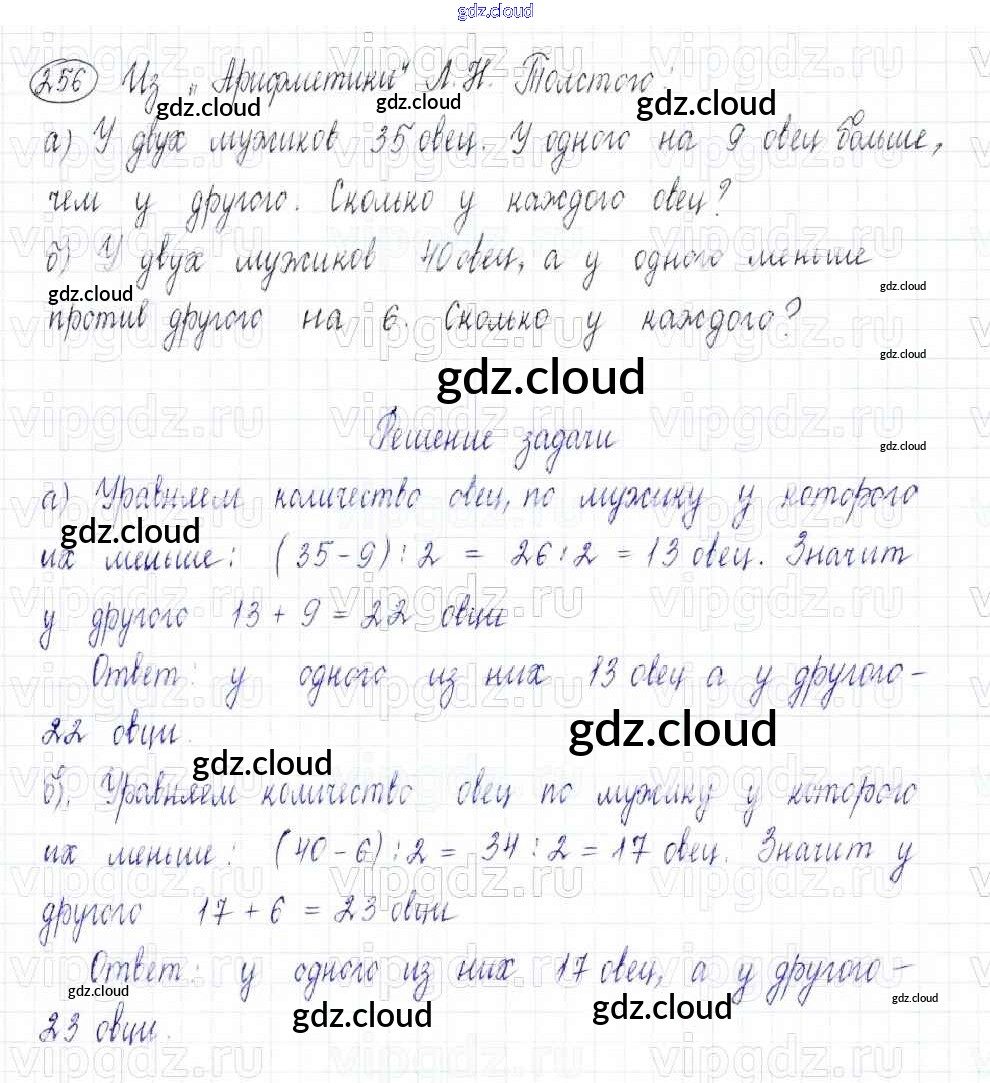 gdz.cloud
256 Из „Арифметики“ Л.Н. Толстого:
gdz.cloud gdz.cloud gdz.cloud
а) У двух мужиков 35 овец. У одного на 9 овец больше,
чем у другого. Сколько у каждого овец?
б) У двух мужиков 40 овец, а у одного меньше
gdz.cloud gdz.cloud
против другого на 6. Сколько у каждого?
gdz.cloud
gdz.cloud
Решение задачи
gdz.cloud
а) Уравняем количество овец, по мужику у которого
gdz.cloud
их меньше: (35-9):2 = 26:2 = 13 овец. Значит
у другого 13 + 9 = 22 овцы
Ответ: у одного из них 13 овец а у другого -
22 овцы.
gdz.cloud
gdz.cloud
б). Уравняем количество овец по мужику у которого
их меньше: (40-6):2 = 34:2 = 17 овец. Значит у
другого 17 + 6 = 23 овцы
Ответ: у одного из них 17 овец, а у другого -
gdz.cloud gdz.cloud gdz.cloud gdz.cloud
23 овцы.
vipgdz.ru